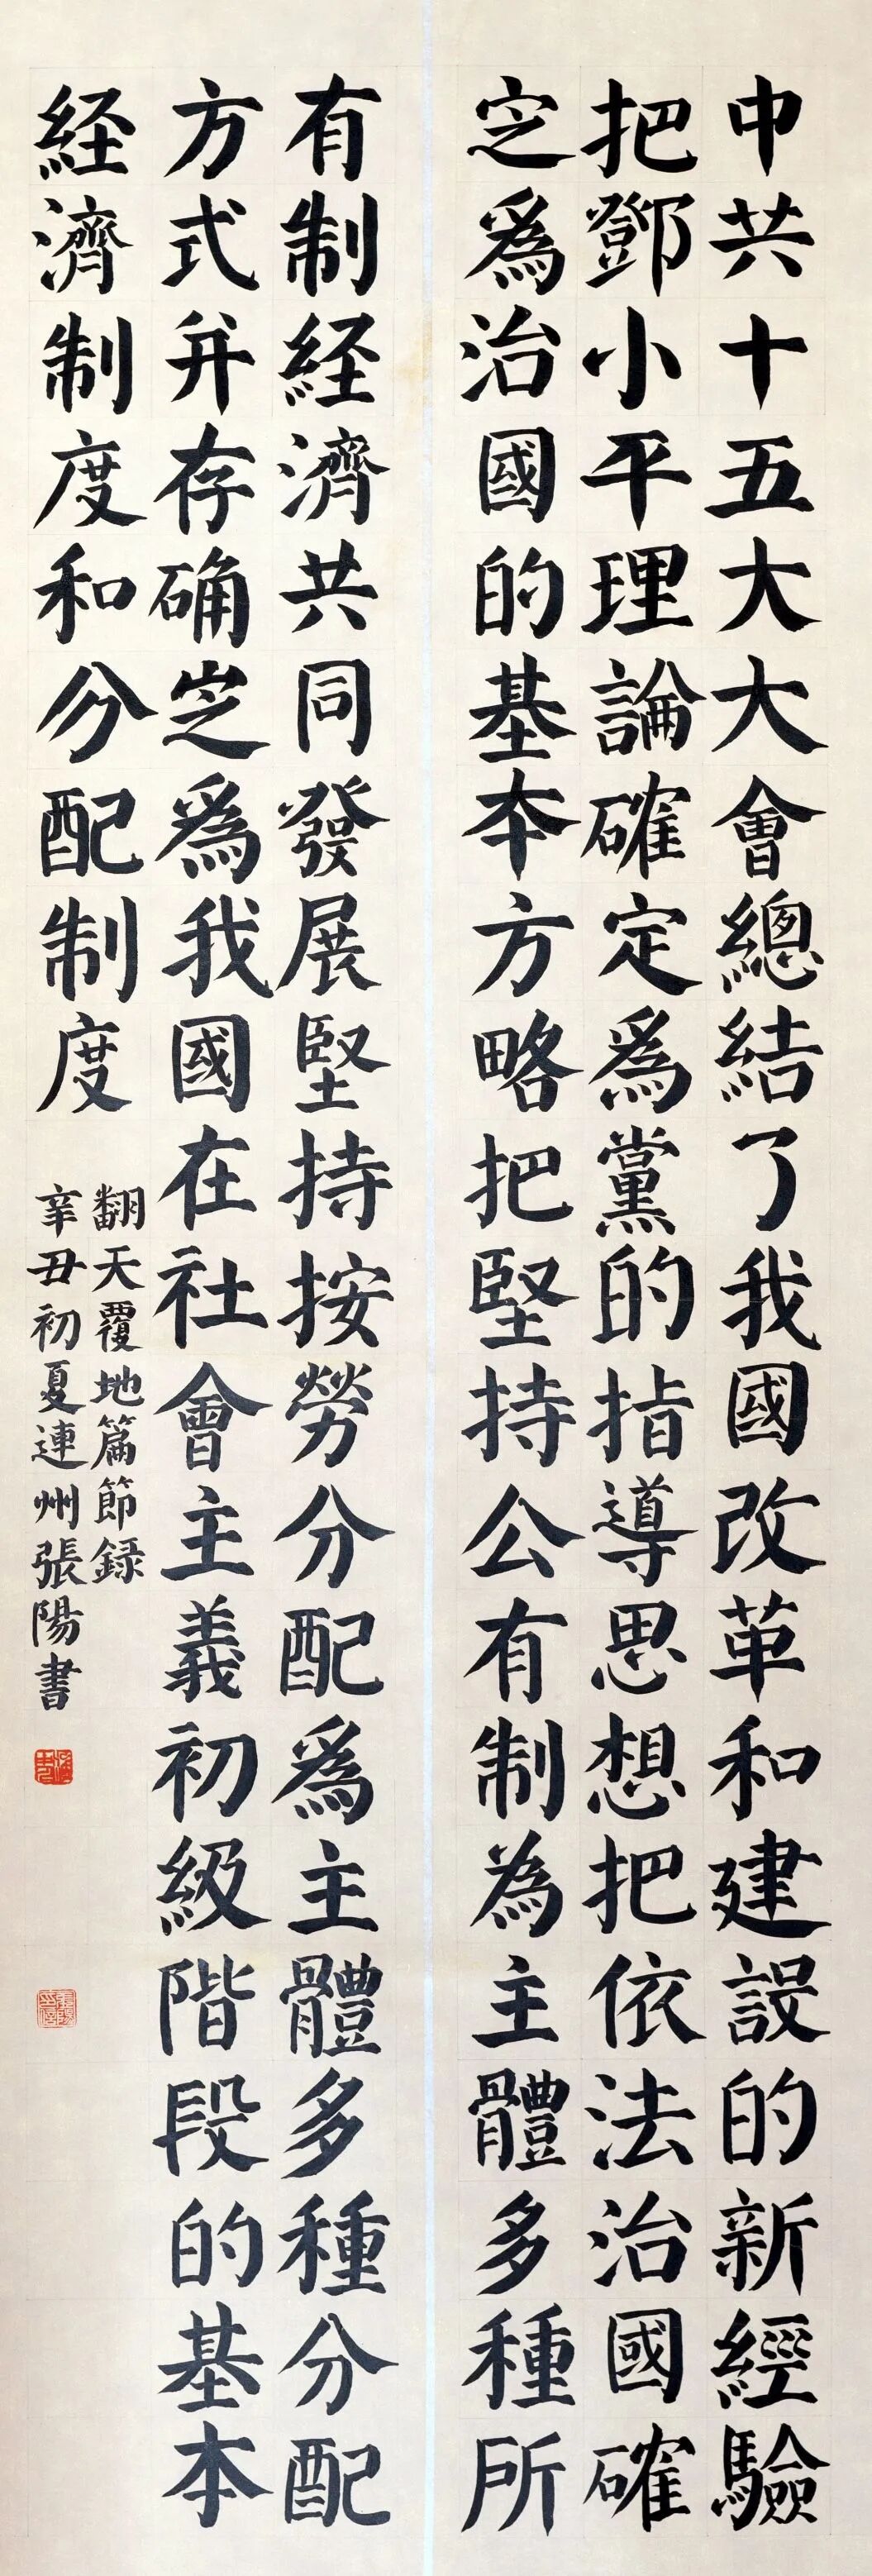 中共十五大大會總結了我國改革和建設的新經驗
把鄧小平理論確定爲黨的指導思想把依法治國確
定爲治國的基本方略把堅持公有制為主體多種所
有制経濟共同發展堅持按勞分配爲主體多種分配
方式并存确定爲我國在社會主義初級階段的基本
経濟制度和分配制度
翻天覆地篇節録
辛丑初夏連州張陽書